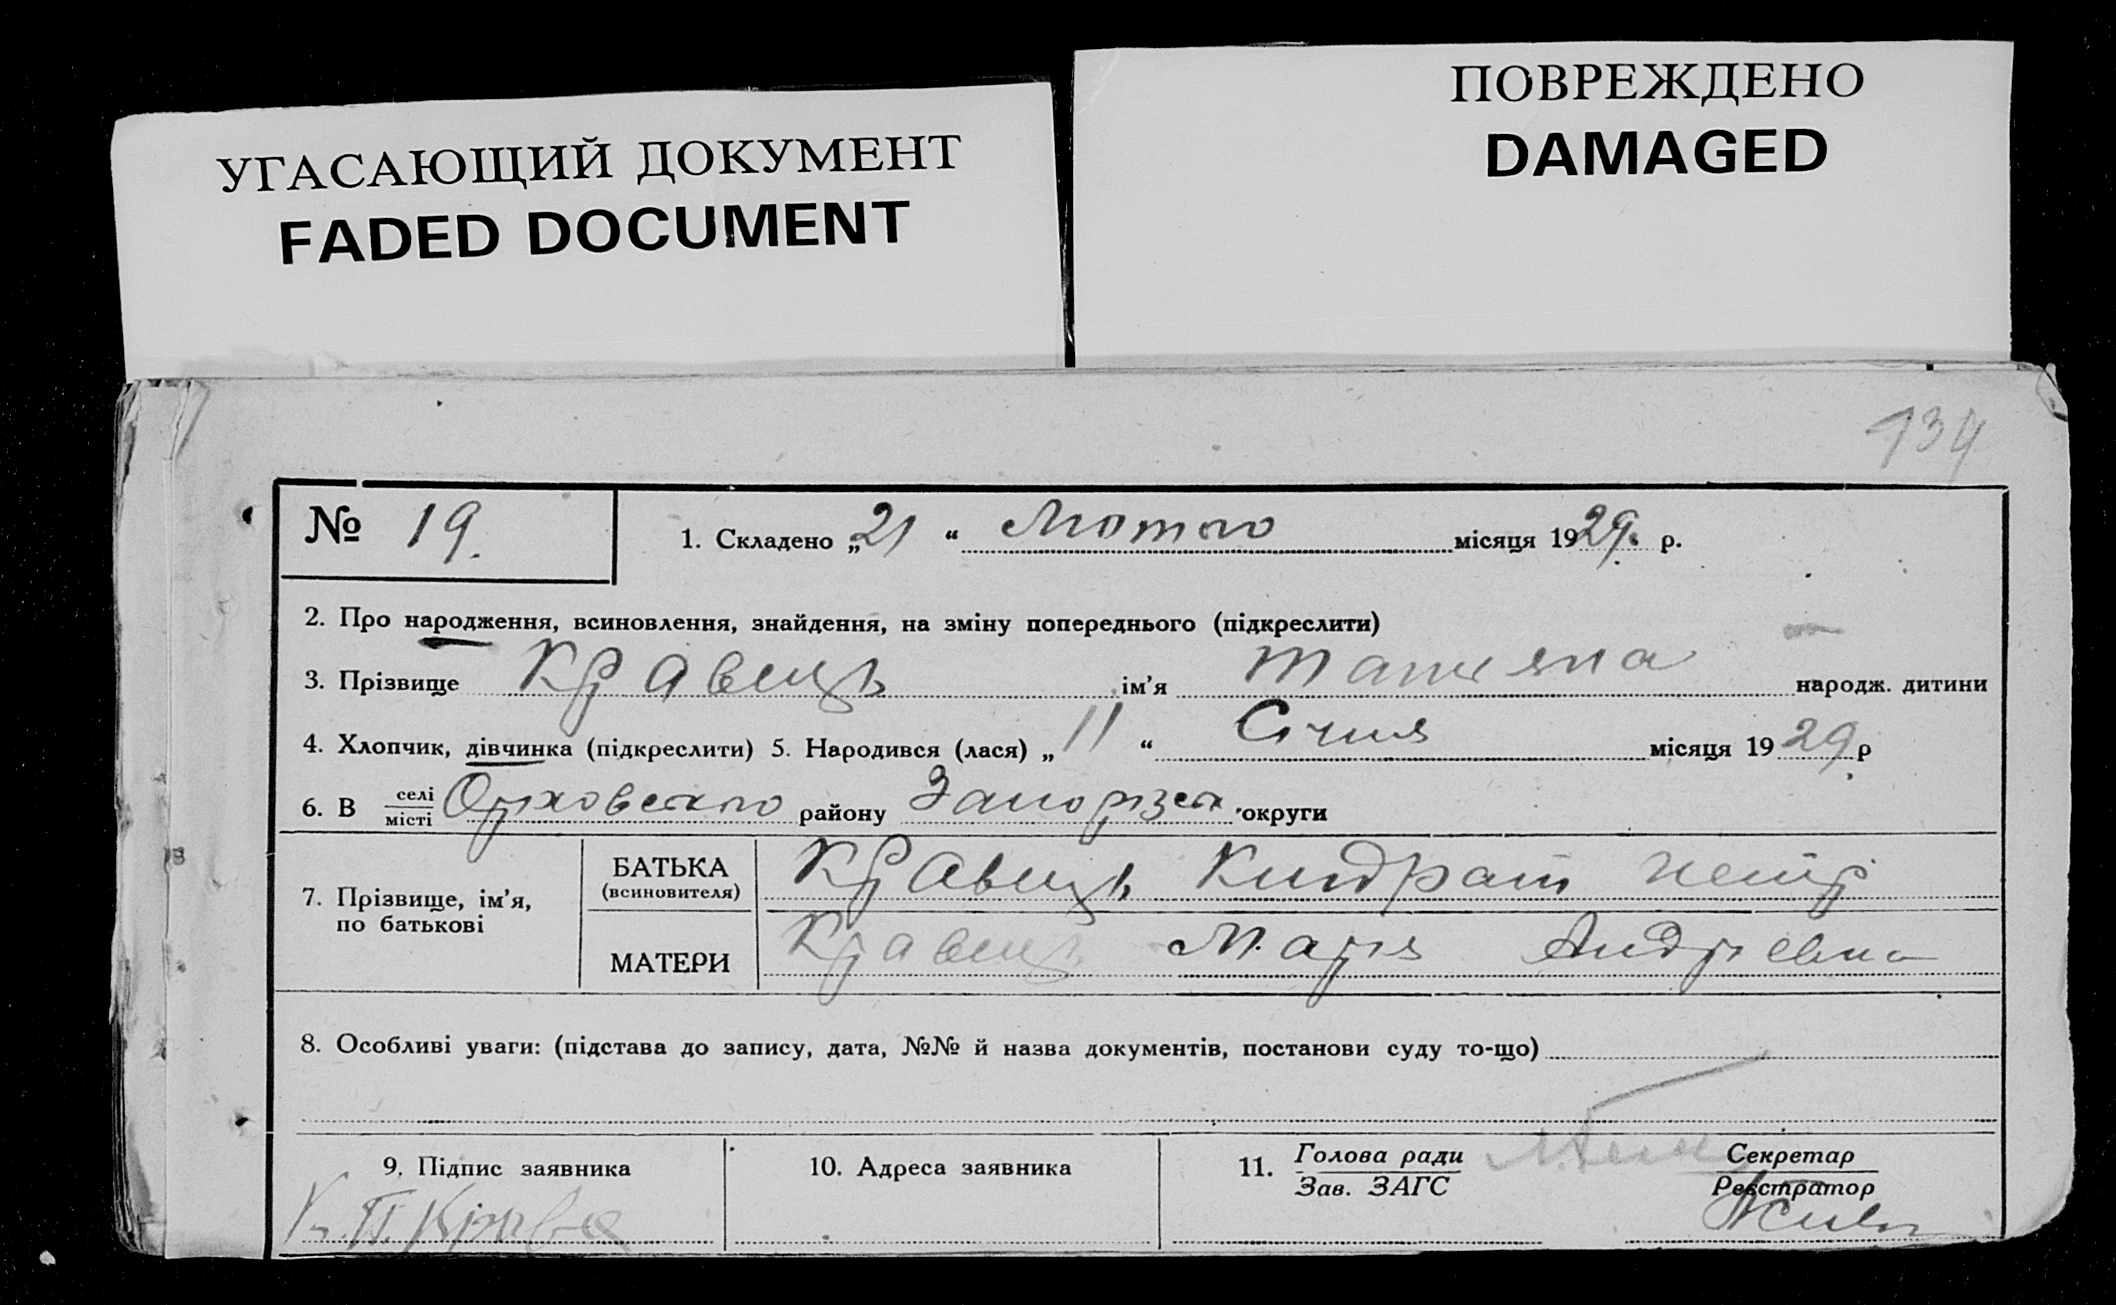 УГАСАЮЩИЙ ДОКУМЕНТ
FADED DOCUMENT
ПОВРЕЖДЕНО
DAMAGED
134
№ 19.
1. Складено „21“ Лютого місяця 1929. р.
2. Про народження, всиновлення, знайдення, на зміну попереднього (підкреслити)
3. Прізвище Кравець ім’я Татияна народж. дитини
4. Хлопчик, дівчинка (підкреслити) 5. Народився (лася) „11“ Січня місяця 1929 р
6. В селі місті Оріховского району Запорізск. округи
7. Прізвище, ім’я, по батькові
БАТЬКА (всиновителя) Кравець Киндрат Петр
МАТЕРИ Кравець Марія Андріевна
8. Особливі уваги: (підстава до запису, дата, №№ й назва документів, постанови суду то-що)
9. Підпис заявника
10. Адреса заявника
11. Голова ради Зав. ЗАГС
Секретар Реєстратор
К. П. Краве